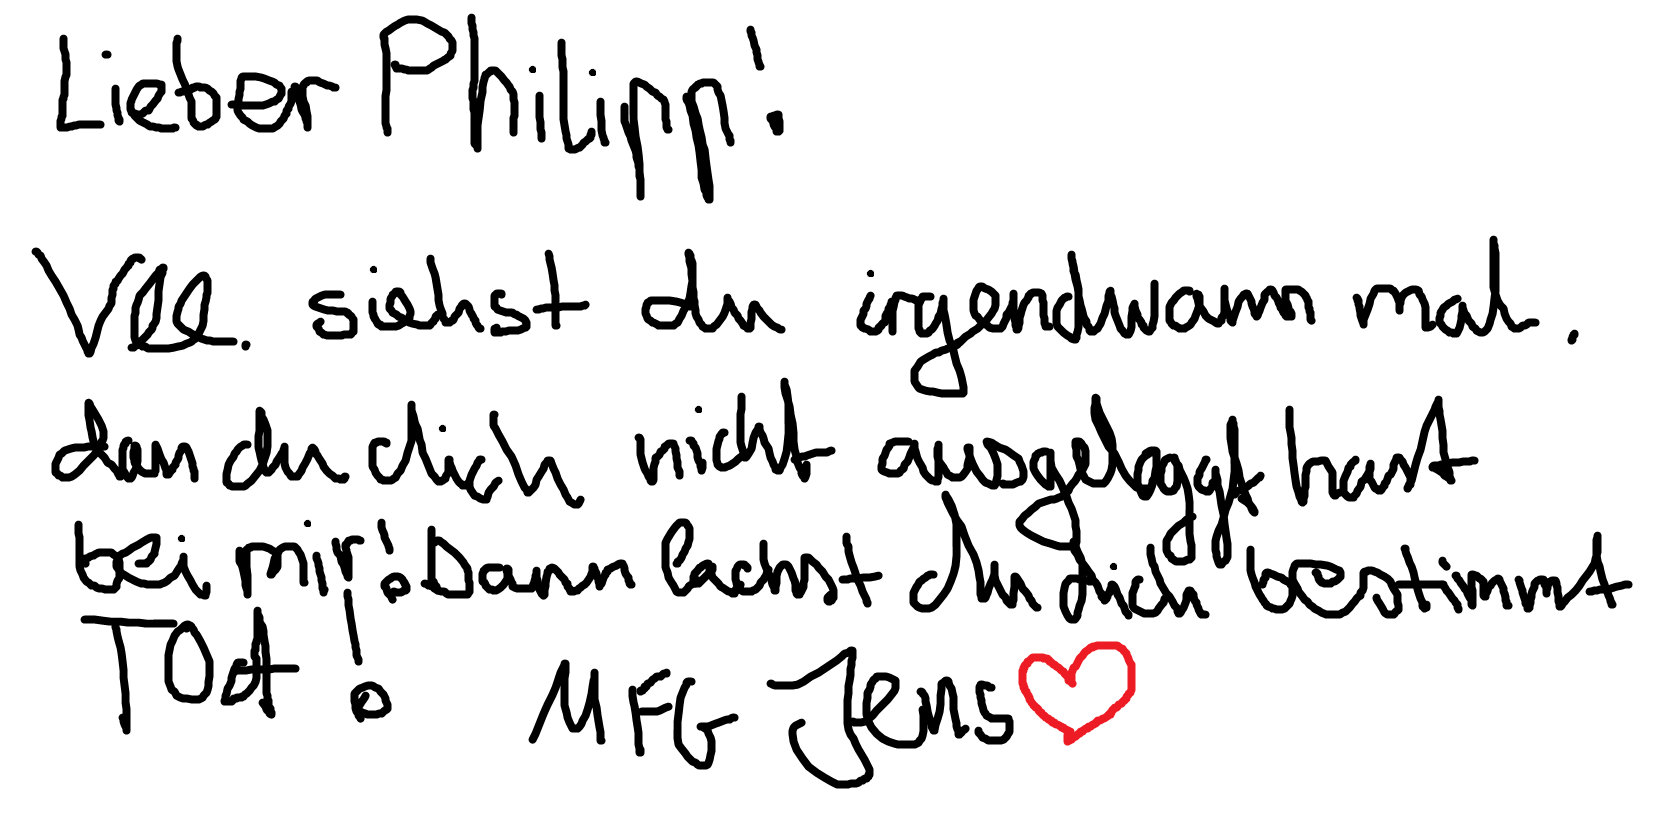 Lieber Philipp!
Vll. siehst du irgendwann mal.
dan du dich nicht ausgeloggt hast
bei mir! Dann lachst du dich bestimmt
Tot! MFG Jens